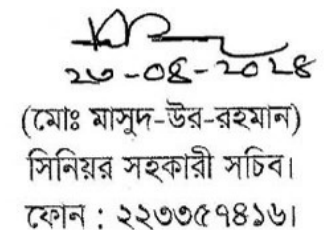 ২৩-০৪-২০২৪
(মোঃ মাসুদ-উর-রহমান)
সিনিয়র সহকারী সচিব।
ফোন : ২২৩৩৫৭৪১৬।